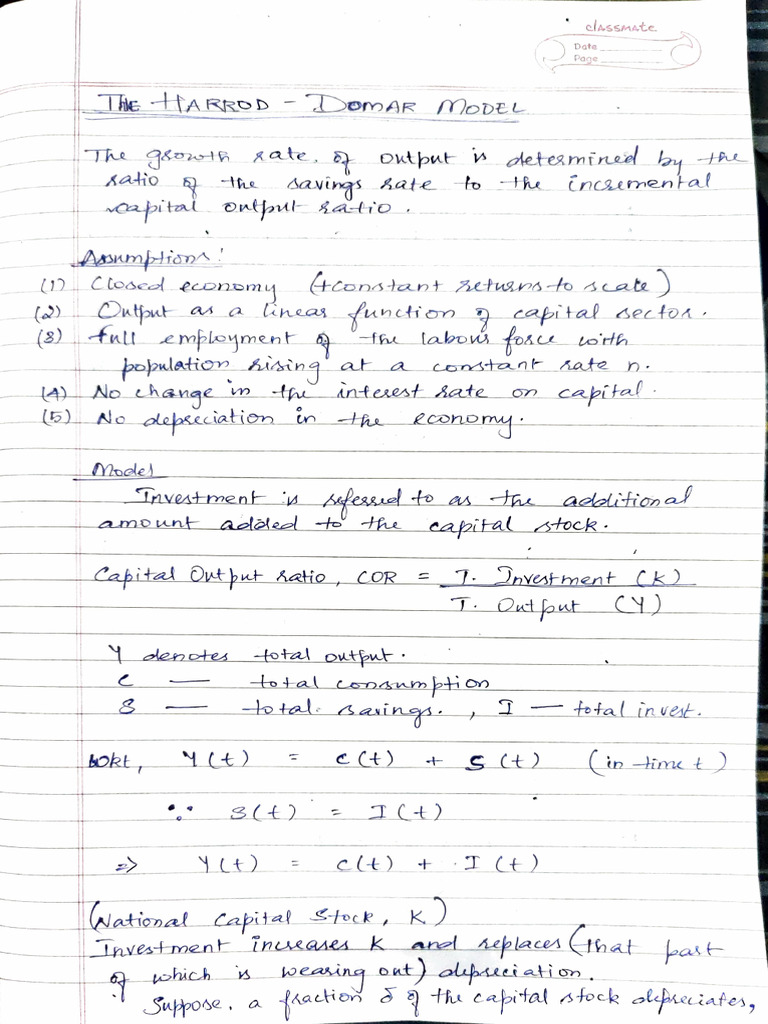 classmate
Date
Page
THE HARROD - DOMAR MODEL
The growth rate of output is determined by the
ratio of the savings rate to the incremental
capital output ratio.
Assumptions:
(1) Closed economy (+constant returns to scale)
(2) Output as a linear function of capital sector.
(3) full employment of the labour force with
population rising at a constant rate n.
(4) No change in the interest rate on capital.
(5) No depreciation in the economy.
Model
Investment is referred to as the additional
amount added to the capital stock.
Capital Output ratio, COR = T. Investment (K)
T. Output (Y)
Y denotes total output.
C — total consumption
S — total savings. , I — total invest.
WKT, Y(t) = C(t) + S(t) (in time t)
∵ S(t) = I(t)
=> Y(t) = C(t) + I(t)
(National Capital Stock, K)
Investment increases K and replaces (that part
of which is wearing out) depreciation.
Suppose, a fraction δ of the capital stock depreciates,